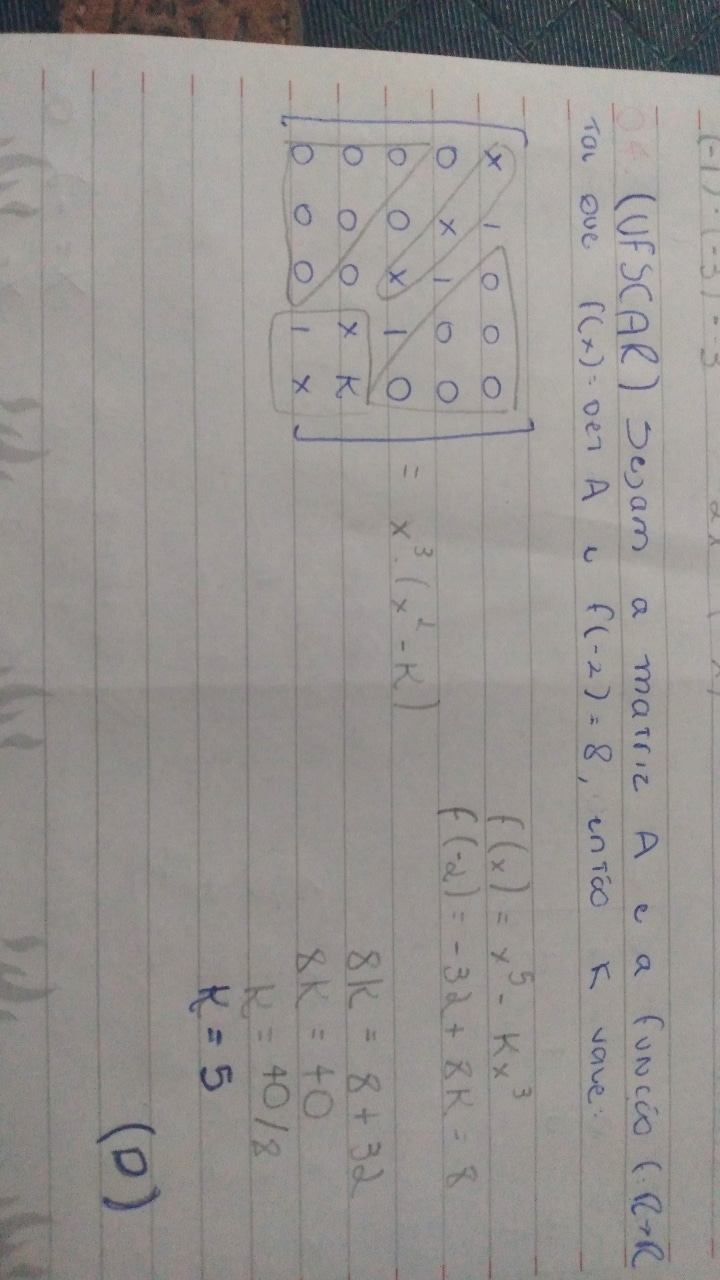 (-1) · (-3) = 3
04. (UFSCAR) Sejam a matriz A e a função f:R→R
tal que f(x) = det A e f(-2) = 8, então K vale:
x 1 0 0 0
0 x 1 0 0
0 0 x 1 0 = x³.(x² - K)
0 0 0 x K
0 0 0 1 x
f(x) = x⁵ - Kx³
f(-2) = -32 + 8K = 8
8K = 8 + 32
8K = 40
K = 40/8
K = 5
(D)